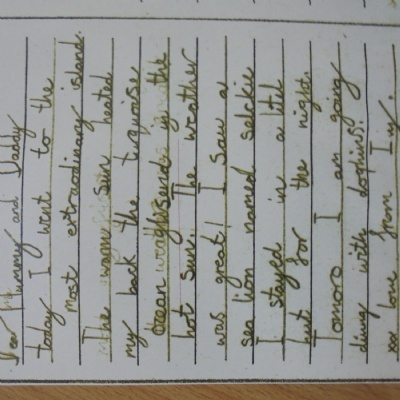 Dear Mummy and Daddy
today I went to the
most extraordinary island.
The warm sun heated
my back the turquoise
Ocean in the
hot sun. The weather
was great! I saw a
sea lion named selckie
I stayed in a litil
hut for the night.
Tomoro I am going
with
xx from